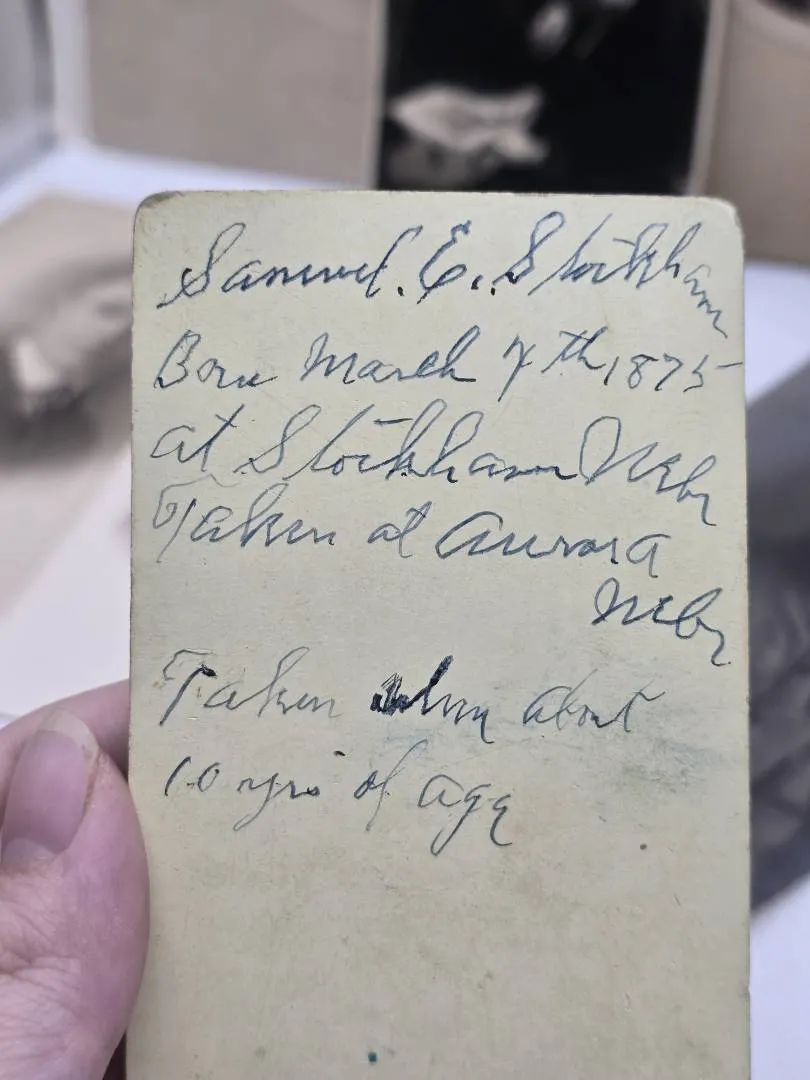 Samuel. E. Stockham
Born March 7th, 1875
at Stockham Nebr
Taken at Aurora
Nebr
Taken when about
10 yrs of age